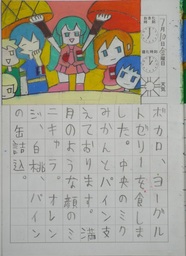 7月10日
ボカロ、ヨーグル
トゼリを食しま
した。中央のミク
みかんとパイン支
えております。満
月のような顔のミ
ニキャラ。オレン
ジ、白桃、パイン
の缶詰込。